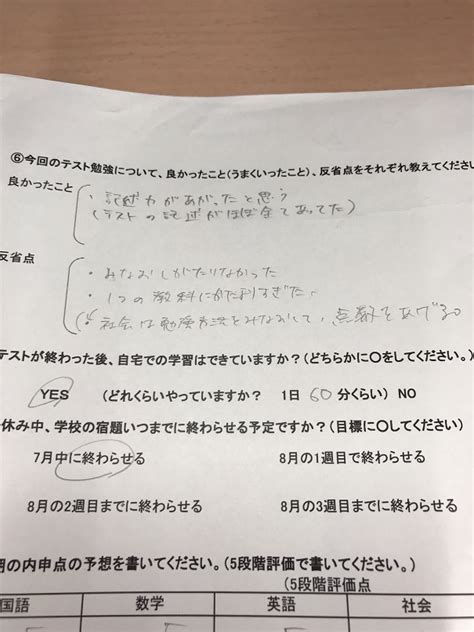 ⑥今回のテスト勉強について、良かったこと(うまくいったこと)、反省点をそれぞれ教えてくださ
良かったこと
・記述力があがったと思う
(テストの記述がほぼ全てあってた)
反省点
・みなおしがたりなかった
・1つの教科にかたよりすぎた。
社会は勉強方法をみなおして、点数をあげる。
テストが終わった後、自宅での学習はできていますか？(どちらかに〇をしてください。)
YES (どれくらいやっていますか？ 1日 60 分くらい) NO
休み中、学校の宿題いつまでに終わらせる予定ですか？(目標に〇してください)
7月中に終わらせる 8月の1週目で終わらせる
8月の2週目までに終わらせる 8月の3週目までに終わらせる
期の内申点の予想を書いてください。(5段階評価で書いてください。)
(5段階評価点
国語 数学 英語 社会